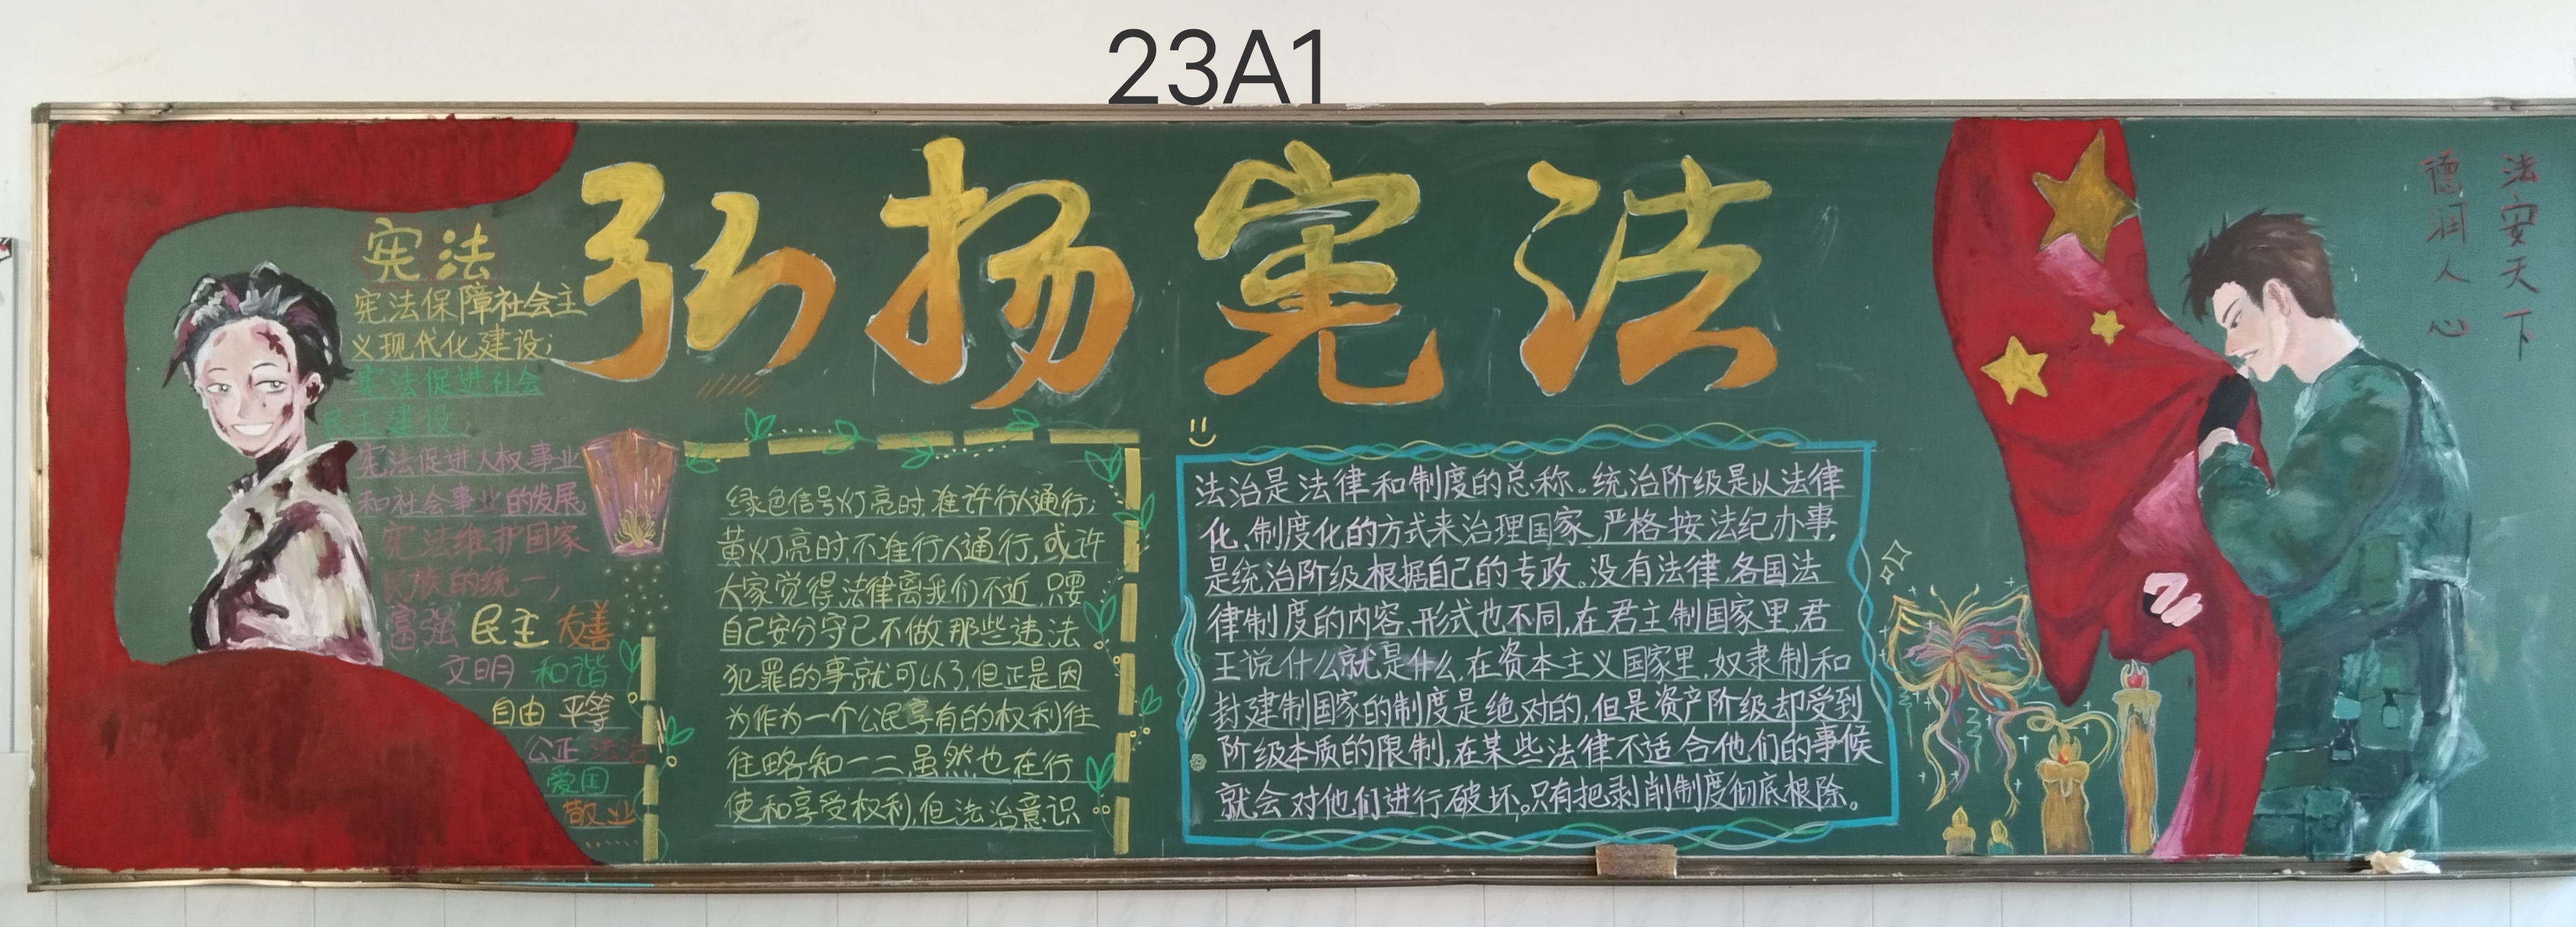 23A1
弘扬宪法
宪法
宪法保障社会主
义现代化建设;
宪法促进社会
民主建设
宪法促进人权事业
和社会事业的发展
宪法维护国家
民族的统一;
富强 民主 友善
文明 和谐
自由 平等
公正 法治
爱国
敬业
绿色信号灯亮时,准许行人通行;
黄灯亮时,不准行人通行,或许
大家觉得法律离我们不近,只要
自己安分守己不做那些违法
犯罪的事就可以了,但正是因
为作为一个公民享有的权利往
往略知一二,虽然也在行
使和享受权利,但法治意识
法治是法律和制度的总称。统治阶级是以法律
化、制度化的方式来治理国家,严格按法纪办事,
是统治阶级根据自己的专政。没有法律,各国法
律制度的内容、形式也不同,在君主制国家里,君
王说什么就是什么,在资本主义国家里,奴隶制和
封建制国家的制度是绝对的,但是资产阶级却受到
阶级本质的限制,在某些法律不适合他们的事候
就会对他们进行破坏。只有把剥削制度彻底根除。
法安天下
德润人心